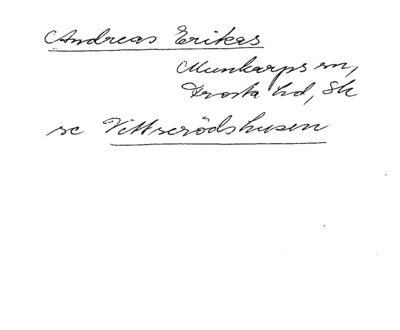 Andreas Erikas
Munkarps sn,
Frosta hd, Sk
se Vittserödshusen